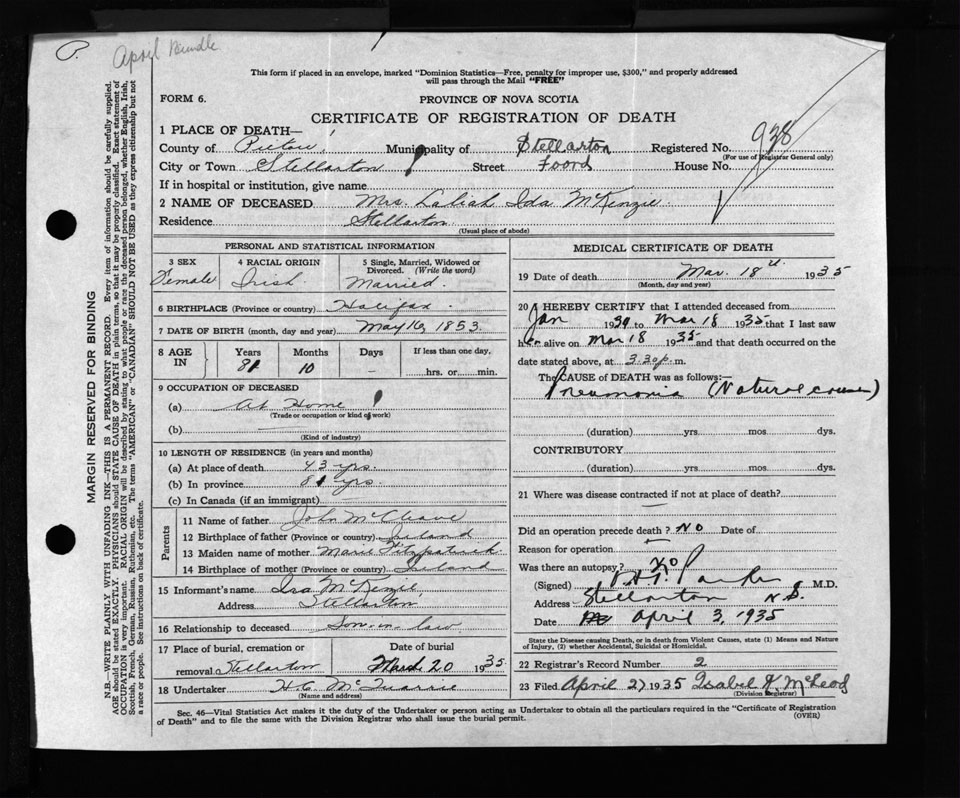 April Bundle
This form if placed in an envelope, marked "Dominion Statistics—Free, penalty for improper use, $300," and properly addressed
will pass through the Mail "FREE"
FORM 6.
PROVINCE OF NOVA SCOTIA
CERTIFICATE OF REGISTRATION OF DEATH
1 PLACE OF DEATH—
County of Pictou Municipality of Stellarton Registered No. 938
(For use of Registrar General only)
City or Town Stellarton Street Foord House No.
If in hospital or institution, give name
2 NAME OF DECEASED Mrs. Laliah Ida McKenzie
Residence Stellarton
(Usual place of abode)
PERSONAL AND STATISTICAL INFORMATION
3 SEX 4 RACIAL ORIGIN 5 Single, Married, Widowed or
Divorced. (Write the word)
Female Irish Married
6 BIRTHPLACE (Province or country) Halifax
7 DATE OF BIRTH (month, day and year) May 16, 1853
8 AGE IN Years Months Days If less than one day,
81 10 — hrs. or min.
9 OCCUPATION OF DECEASED
(a) At Home
(Trade or occupation or kind of work)
(b)
(Kind of industry)
10 LENGTH OF RESIDENCE (in years and months)
(a) At place of death 43 yrs.
(b) In province 81 yrs.
(c) In Canada (if an immigrant)
Parents
11 Name of father John McCleave
12 Birthplace of father (Province or country) Ireland
13 Maiden name of mother Marie Fitzpatrick
14 Birthplace of mother (Province or country) Ireland
15 Informant's name Ira McKenzie
Address Stellarton
16 Relationship to deceased Son-in-law
17 Place of burial, cremation or Date of burial
removal Stellarton March 20 1935
18 Undertaker H.C. McQuarrie
(Name and address)
MEDICAL CERTIFICATE OF DEATH
19 Date of death Mar. 18 1935
(Month, day and year)
20 I HEREBY CERTIFY that I attended deceased from
Jan 1930 to Mar 18 1935 that I last saw
her alive on Mar 18 1935 and that death occurred on the
date stated above, at 3.30 p. m.
The CAUSE OF DEATH was as follows:—
Pneumonia (Natural causes)
(duration) yrs. mos. dys.
CONTRIBUTORY
(duration) yrs. mos. dys.
21 Where was disease contracted if not at place of death?
Did an operation precede death? No Date of
Reason for operation
Was there an autopsy? No
(Signed) Parker M.D.
Address Stellarton N.S.
Date April 3, 1935
State the Disease causing Death, or in death from Violent Causes, state (1) Means and Nature
of Injury, (2) whether Accidental, Suicidal or Homicidal.
22 Registrar's Record Number 2
23 Filed April 2 1935 Isabel K. McLeod
(Division Registrar)
Sec. 46—Vital Statistics Act makes it the duty of the Undertaker or person acting as Undertaker to obtain all the particulars required in the "Certificate of Registration
of Death" and to file the same with the Division Registrar who shall issue the burial permit.
(OVER)
MARGIN RESERVED FOR BINDING
N.B.—WRITE PLAINLY WITH UNFADING INK—THIS IS A PERMANENT RECORD. Every item of information should be carefully supplied.
AGE should be stated EXACTLY. PHYSICIANS should STATE CAUSE OF DEATH in plain terms, so that it may be properly classified. Exact statement of
OCCUPATION is very important. RACIAL ORIGIN will be described by stating to what people or race the deceased person belonged, whether English, Irish,
Scottish, French, German, Russian, Ruthenian, etc. The terms "AMERICAN" or "CANADIAN" SHOULD NOT BE USED as they express citizenship but not
a race or people. See instructions on back of certificate.